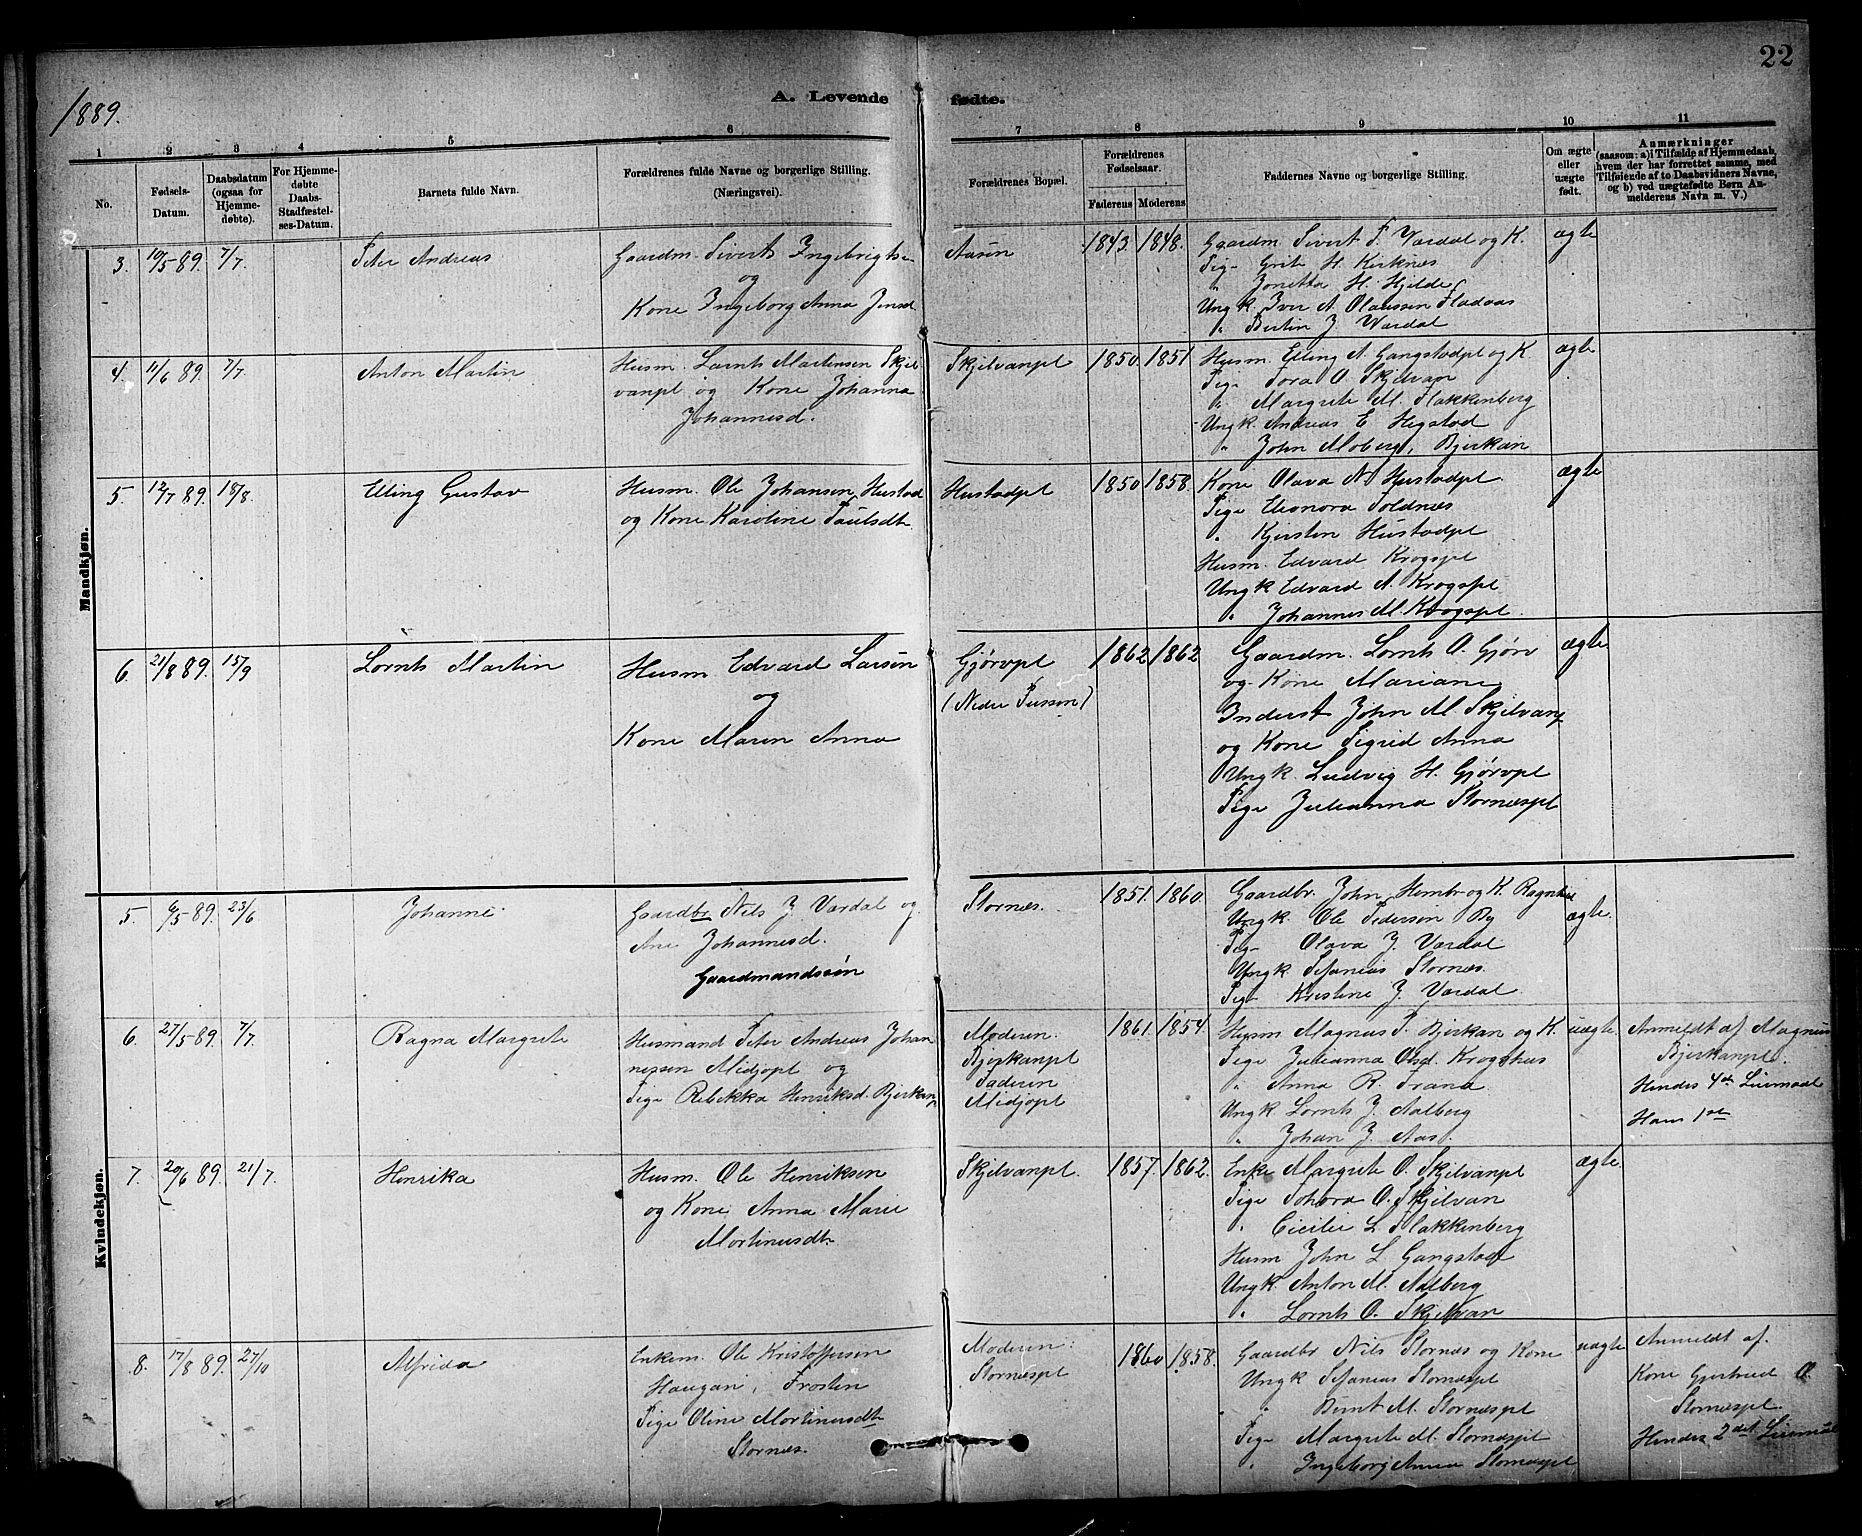 22
1889.
A. Levende fødte.
1 2 3 4 5 6 7 8 9 10 11
No.
Fødsels-
Datum.
Daabsdatum
(ogsaa for
Hjemme-
døbte).
For Hjemme-
døbte
Daabs-
Stadfæstel-
ses-Datum.
Barnets fulde Navn.
Forældrenes fulde Navne og borgerlige Stilling.
(Næringsvei).
Forældrenes Bopæl.
Forældrenes
Fødselsaar.
Faderens Moderens
Faddernes Navne og borgerlige Stilling.
Om ægte
eller
uægte
født.
Anmærkninger
(saasom: a) i Tilfælde af Hjemmedaab,
hvem der har forrettet samme, med
Tilføiende af to Daabsvidners Navne,
og b) ved uægtefødte Børn An-
melderens Navn m. V.)
Mandkjøn.
3. 10/5 89. 7/7. Peter Andreas
Gaardm. Sivert Ingebrigts-
og
Kone Ingeborg Anna Jensd.
Aasen 1843. 1848.
Gaardm. Sivert P. Værdal og K.
Pige Grete H. Kirknes
" Jonetta H. Hjelde
Ungk. Iver A. Olaussen Fladaas
" Bertin J. Værdal
ægte
4. 11/6 89. 7/7. Anton Martin
Husm. Lornts Martinsen Skjel
vanpl og Kone Johanna
Johannesd.
Skjelvanpl 1850. 1851
Husm. Elling A. Gangstadpl og K
Pige Tora O. Skjelvan
" Margrete M. Flakkenberg
Ungk. Andreas E Hegstad
" John Moberg, Bjerkan
ægte
5. 12/7 89. 18/8. Elling Gustav
Husm. Ole Johansen Hustad
og Kone Karoline Paulsdt.
Hustadpl 1850 1858.
Kone Olava N. Hustadpl
Pige Eleonora Foldnæs
" Kjersten Hustadpl
Husm. Edvard Krogspl
Ungk Edvard A. Krogspl
" Johannes M. Krogspl.
ægte
6. 21/8 89. 15/9 Lornts Martin
Husm. Edvard Larsen
og
Kone Maren Anna
Gjørvpl
(Nedre )
1862 1862
Gaardm. Lornts O. Gjørv
og Kone Mariane
Inderst John M. Skjelvanp
og Kone Sigrid Anna
Ungk. Ludvig H. Gjørvpl
Pige Julianna Stornæspl
ægte
Kvindekjøn.
5. 6/5 89. 23/6 Johanne
Gaardbr Nils J. Værdal og
Ane Johannesd.
Gaardmandssøn
Stornæs. 1851. 1860.
Gaardbr. John Hembr og K. Ragnhil
Ungk. Ole Pedersen By
Pige Olava J. Værdal
Ungk. Sefanias Stornæs.
Pige Kristine J. Værdal.
ægte.
6. 27/5 89. 7/7. Ragna Margrete
Husmand Peter Andreas Johan
nessen Midjopl og
Pige Rebekka Henriksd. Bjerkanp.
Moderen.
Bjerkanpl
Faderen
Midjopl
1861. 1854.
Husm Magnus P. Bjerkan og K.
Pige Julianna Olsd. Krogshus
" Anna R. Trana
Ungk Lornts J. Aalberg
" Johan J. Aas.
uægte
Anmeldt af Magnus
Bjerkanpl.
Hendes 4de Leiermaal
Hans 1ste
7. 20/6 89. 21/7. Henrika
Husm. Ole Henriksen
og Kone Anna Marie
Mortinusdt.
Skjelvanpl. 1857. 1862.
Enke Margrete O. Skjelvanpl
Pige Tohora O. Skjelvan
" Cicilie L. Flakkenberg
Husm John L Gangstad
Ungk. Anton M. Aalberg
" Lornts O. Skjelvan
ægte.
8. 17/8 89. 27/10 Alfrida
Enkem. Ole Kristoffersen
Haugan, Frosten
Pige Oline Mortinusdt.
Stornæs.
Moderen:
Stornæspl
1860. 1858.
Gaardbr Nils Stornæs og Kone
Ungk Sefanias Stornæspl
" Bernt M. Stornæspl
Pige Margrete M. Stornæspl
" Ingeborg Anna Stornæspl
uægte
Anmeldt af.
Kone Gjertrud O.
Stornæspl.
Hendes 2det Leiermaal